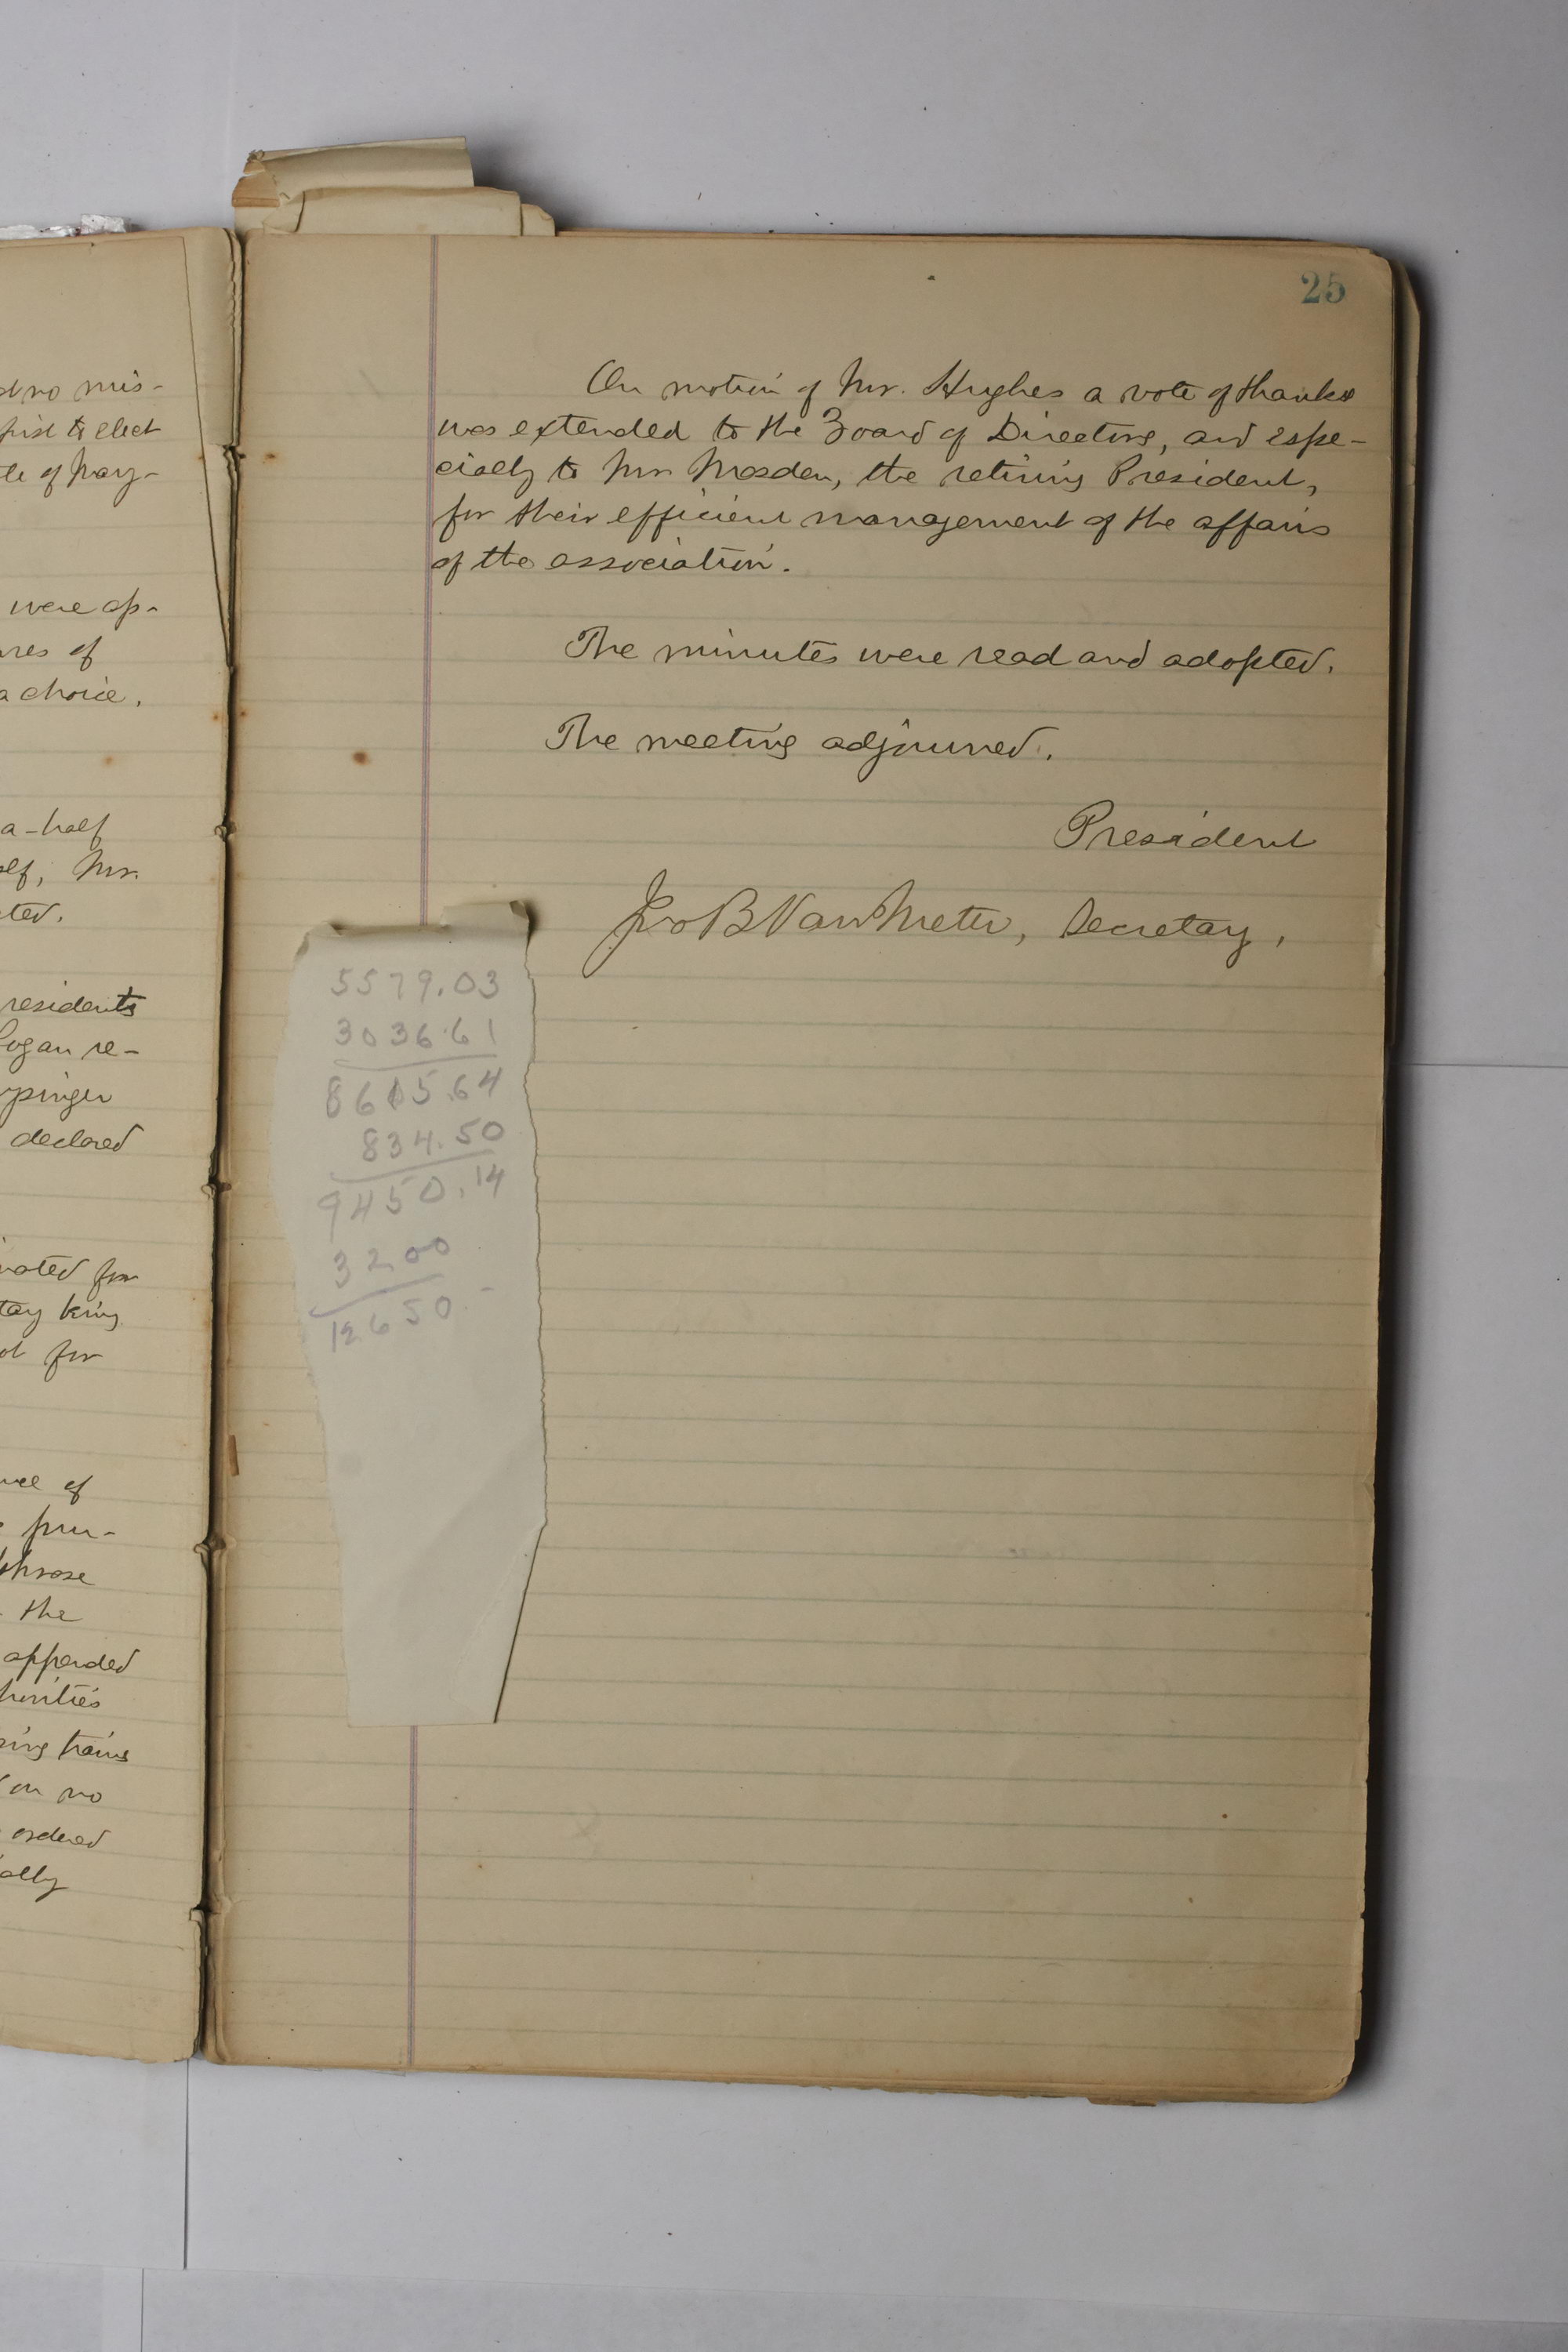 d no mis-
first to elect
te of Way-
were ap-
res of
a choice.
a-half
elf, Mr.
ted.
residents
Logan re-
ppinger
declared
nated for
tary King
ot for
nce of
pur-
phrase
the
appended
horities
ping trains
on no
ordered
ally
25
On motion of Mr. Hughes a vote of thanks
was extended to the Board of Directors, and espe-
cially to Mr. Masden, the retiring President,
for their efficient management of the affairs
of the association.
The minutes were read and adopted.
The meeting adjourned.
President
Jno B Van Meter, Secretary.
5579.03
3036.61
8615.64
834.50
9450.14
3200
12650.-